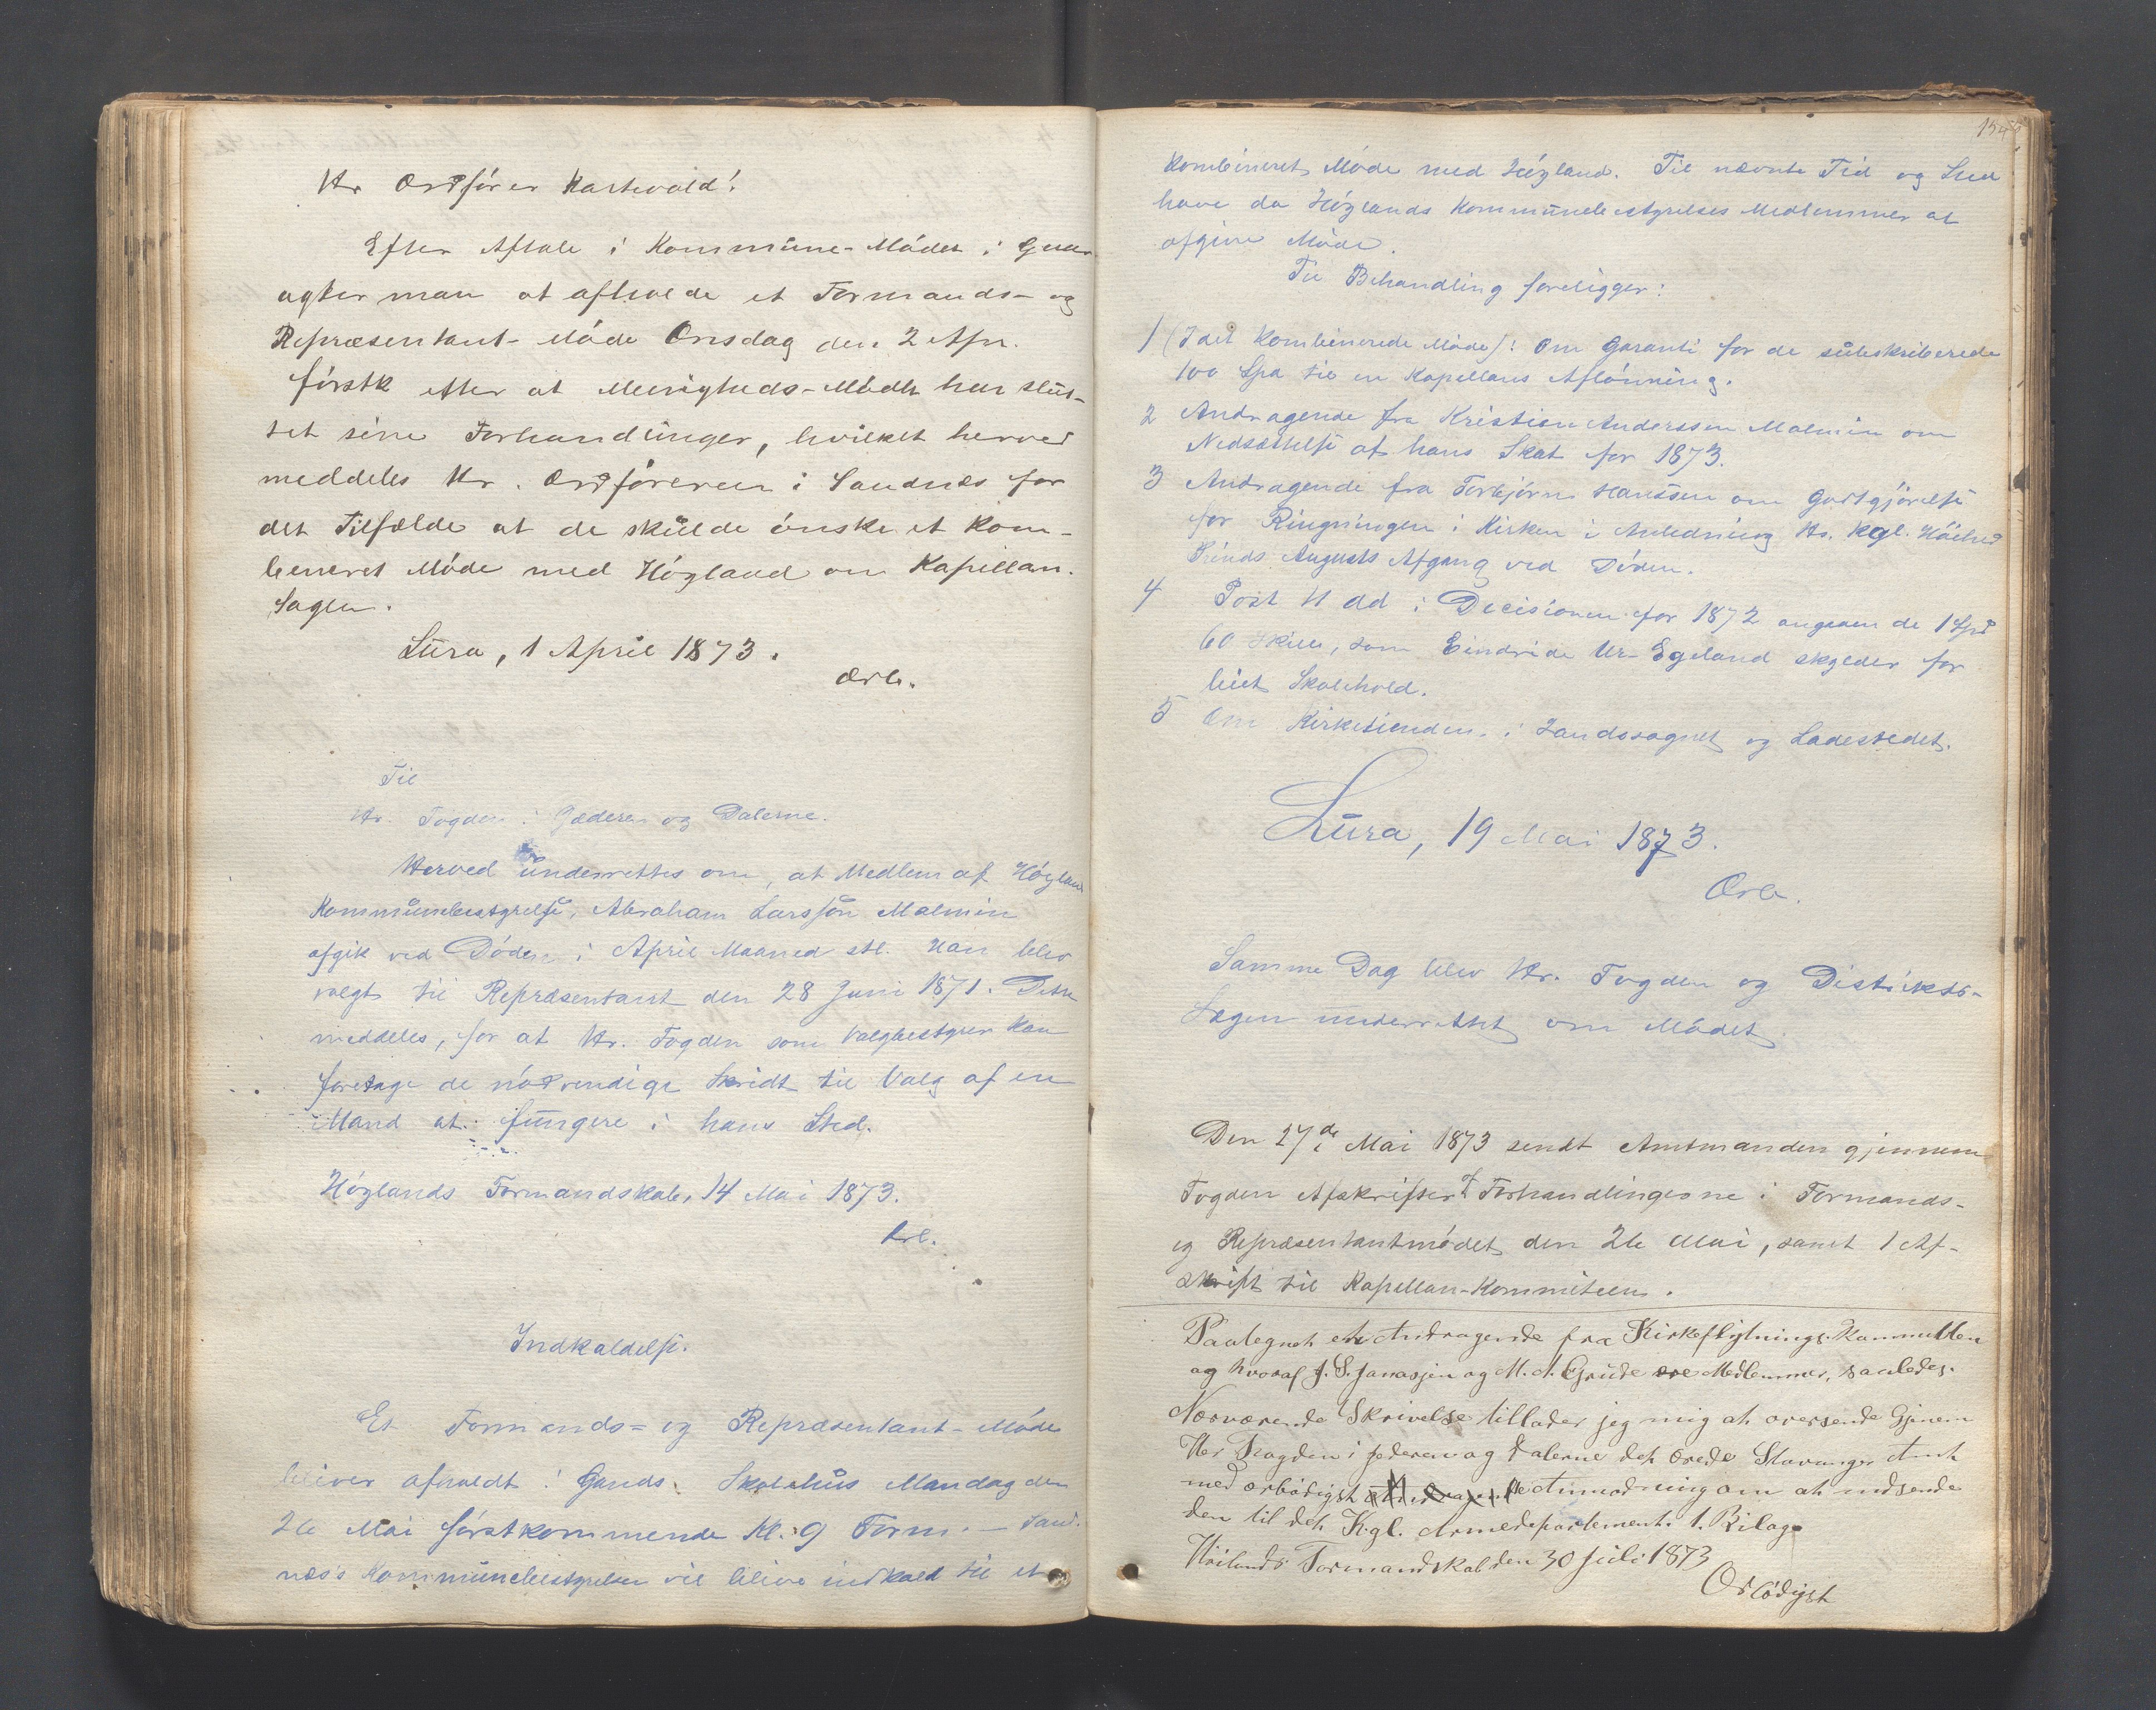 Hr Ordfører Kartevold!
Efter Aftale i Kommune-Mødet i Gaar
agter man at afholde et Formands- og
Repræsentant-Møde Onsdag den 2 Apr.
førstk efter at Menigheds-Mødet har slut-
tet sine Forhandlinger, hvilket herved
meddeles Hr. Ordføreren i Sandnæs for
det Tilfælde at de skulde ønske et kom-
bineret Møde med Høgland om Kapellan-
Sagen.
Lura, 1 April 1873.
Ærb.
Til
Hr. Fogden i Jæderen og Dalerne.
Herved underrettes om, at Medlem af Høgland
Kommunebestyrelse, Abraham Larssøn Malmin
afgik ved Døden i April Maaned stl. Han blev
valgt til Repræsentant den 28 Juni 1871. Dette
meddeles, for at Hr. Fogden som Valgbestyrer kan
foretage de nødvendige Skridt til Valg af en
Mand at fungere i hans Sted.
Høglands Formandskab, 14 Mai 1873.
Ærb.
Indkaldelse.
Et Formands- og Repræsentant-Møde
bliver afholdt i Gands Skolehus Mandag den
26 Mai førstkommende Kl. 9 Form. – Sand-
næs's Kommunebestyrelse vil blive indkaldt til et
154
kombineret Møde med Høgland. Til nævnte Tid og Sted
have da Høglands Kommunebestyrelses Medlemmer at
afgive Møde.
Til Behandling foreligger:
1 (I det kombinerede Møde): Om Garanti for de subskriberede
100 Spd til en Kapellans Aflønning.
2 Andragende fra Kristian Anderssen Malmin om
Nedsættelse af hans Skat for 1873.
3 Andragende fra Torbjørn Hanssen om Godtgjørelse
for Ringningen i Kirken i Anledning Hs. Kgl. Høihed
Prinds Augusts Afgang ved Døden.
4 Post 11 dd i Decisionen for 1872 angaaende 1 Spd
60 Skill, som Eindride Ur-Egeland skylder for
leiet Skolehold.
5 Om Kirketienden i Landssognet og Ladestedet.
Lura, 19 Mai 1873.
Ærb.
Samme Dag blev Hr. Fogden og Distrikts-
Lægen underrettet om Mødet.
Den 27de Mai 1873 sendt Amtmanden gjennem
Fogden Afskrifter af Forhandlingerne i Formands-
og Repræsentantmødet den 26 Mai, samt 1 Af-
skrift til Kapellan-Kommiteen.
Paategnet et Andragende fra Kirkeflytnings-Kommitten
og hvoraf J. S. Jonasjen og M. A. Grude ere Medlemmer, saaledes.
Nærværende Skrivelse tillader jeg mig at oversende Gjenem
Her Fragden i Jederen og Dalerne det ærede Stavanger Amt
med ærbødigst Anmodning om at indsende
den til det Kgl. Armedepartement. 1. Bilag
Høilands Formandskab den 30 Juli 1873
Ærbødigst